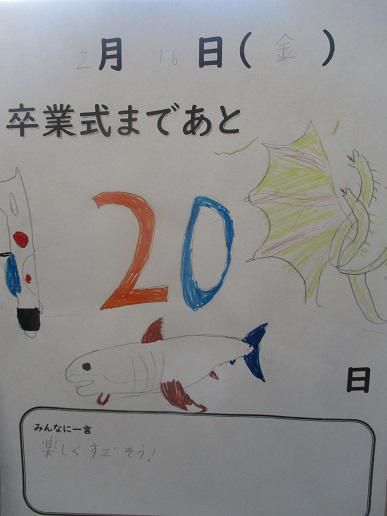 2月 16日(金)
卒業式まであと
20
日
みんなに一言
楽しくすごそう!